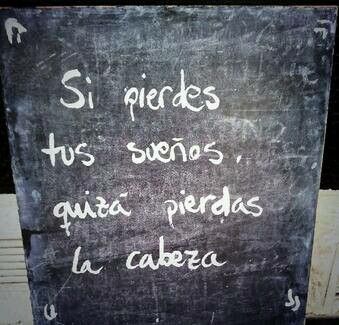 Si pierdes
tus sueños,
quizá pierdas
la cabeza